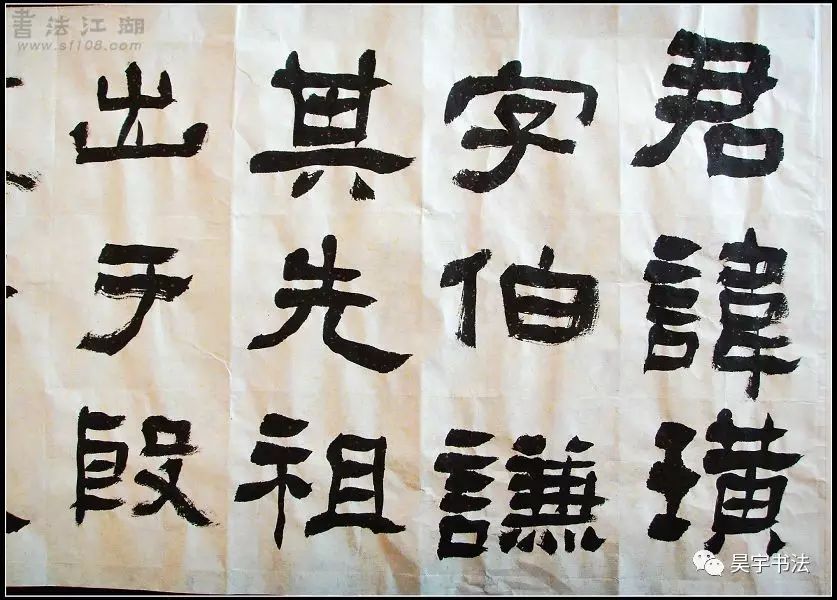 君諱璜
字伯謙
其先祖
出于殷
書法江湖
www.sf108.com
昊宇书法